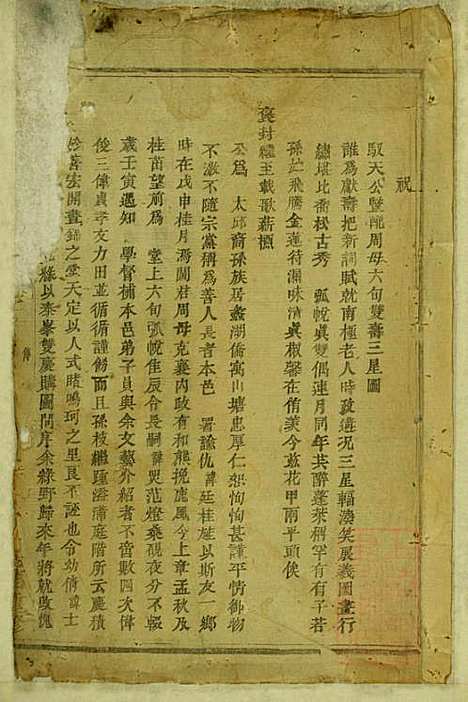 祝
馭天公暨配周母六旬雙壽三星圖
誰爲獻壽把新詞賦就南極老人時政遘況三星輻湊笑展義圖畫行
繡堪比喬松古秀 瓠帨眞雙偶連月同年共醉蓬萊稱罕有有子若
孫定飛騰金蓮待瀾味清眞椒馨在侑美今茲花甲兩平頭俟
褒封纔至載歌薪槱
公爲 太邱裔孫族居蠡湖僑寓山塘忠厚仁恕恂恂甚謹平情御物
不激不隨宗黨稱爲善人長者本邑 署諭仇諱廷桂旌以斯友一鄉
時在戊申桂月馮閫君周母克襄內政有和熊挽鹿風今上章孟秋及
桂苗望前爲 堂上六旬弧帨佳辰令長嗣諱煚范燈乘硯夜分不輟
歲壬寅遇知 學督補本邑弟子員與余文藝介紹者不啻數四次偉
俊三偉眞孝友力田並循循謹飭而且孫枝繼躍溢蒲庭階所云慶積
善宏開晝錦之堂天定以人式睹鳴珂之里良不誣也令幼倩諱士
以泰峯雙慶購圖問序余綠野歸來年將就政愧